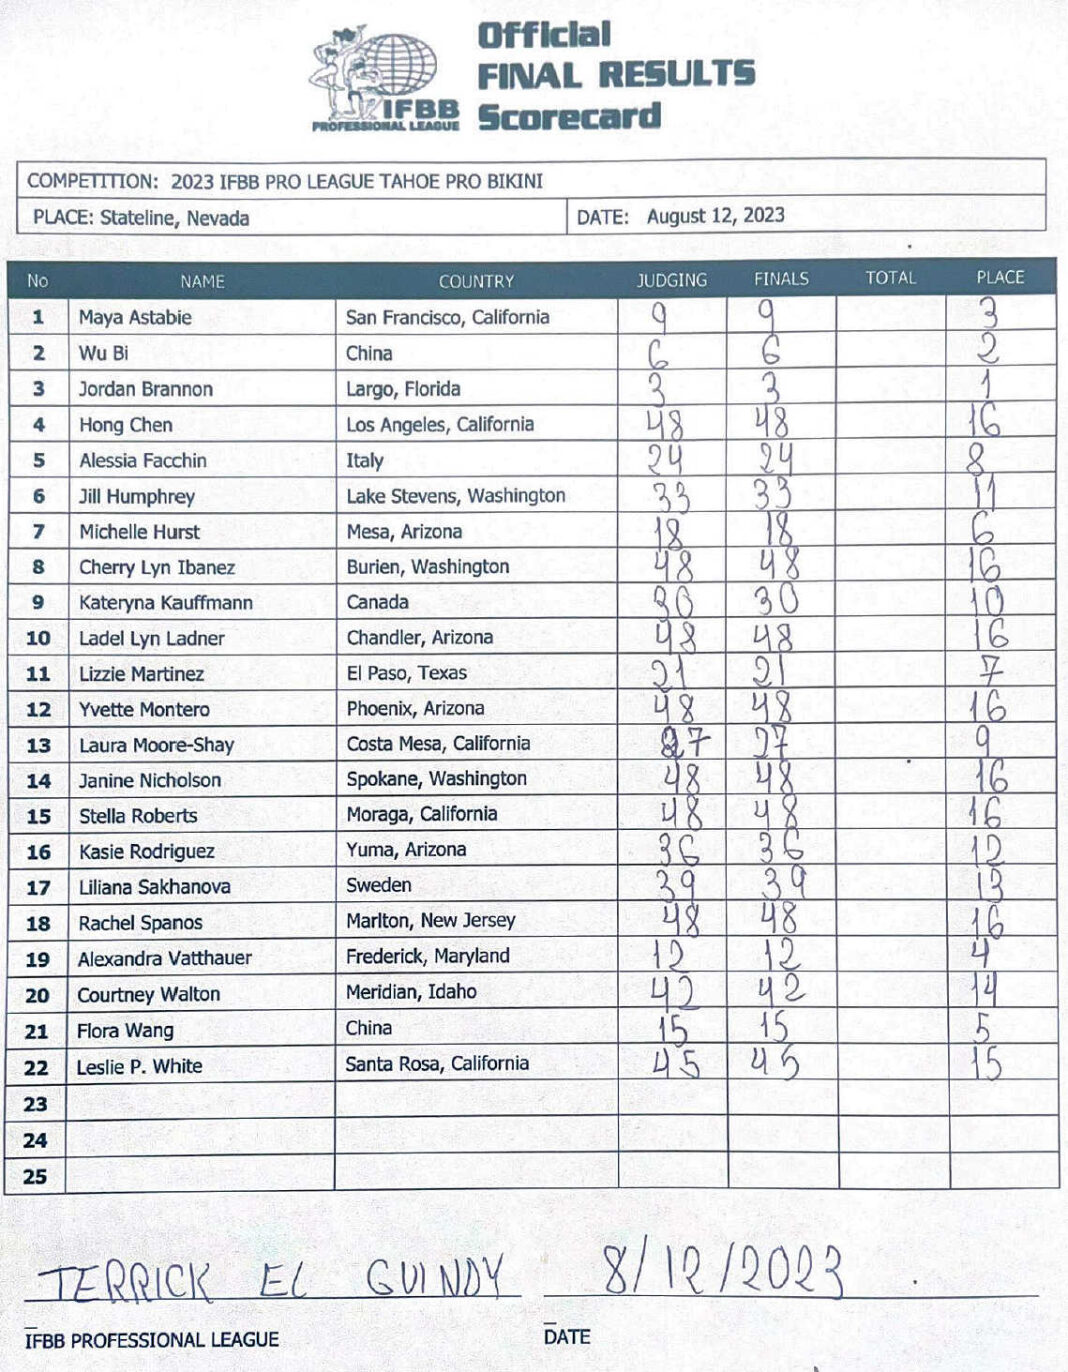 Official
FINAL RESULTS
Scorecard
IFBB
PROFESSIONAL LEAGUE
COMPETITION: 2023 IFBB PRO LEAGUE TAHOE PRO BIKINI
PLACE: Stateline, Nevada DATE: August 12, 2023
No NAME COUNTRY JUDGING FINALS TOTAL PLACE
1 Maya Astabie San Francisco, California 9 9 3
2 Wu Bi China 6 6 2
3 Jordan Brannon Largo, Florida 3 3 1
4 Hong Chen Los Angeles, California 48 48 16
5 Alessia Facchin Italy 24 24 8
6 Jill Humphrey Lake Stevens, Washington 33 33 11
7 Michelle Hurst Mesa, Arizona 18 18 6
8 Cherry Lyn Ibanez Burien, Washington 48 48 16
9 Kateryna Kauffmann Canada 30 30 10
10 Ladel Lyn Ladner Chandler, Arizona 48 48 16
11 Lizzie Martinez El Paso, Texas 21 21 7
12 Yvette Montero Phoenix, Arizona 48 48 16
13 Laura Moore-Shay Costa Mesa, California 27 27 9
14 Janine Nicholson Spokane, Washington 48 48 16
15 Stella Roberts Moraga, California 48 48 16
16 Kasie Rodriguez Yuma, Arizona 36 36 12
17 Liliana Sakhanova Sweden 39 39 13
18 Rachel Spanos Marlton, New Jersey 48 48 16
19 Alexandra Vatthauer Frederick, Maryland 12 12 4
20 Courtney Walton Meridian, Idaho 42 42 14
21 Flora Wang China 15 15 5
22 Leslie P. White Santa Rosa, California 45 45 15
23
24
25
TERRICK EL GUINDY 8/12/2023
IFBB PROFESSIONAL LEAGUE DATE